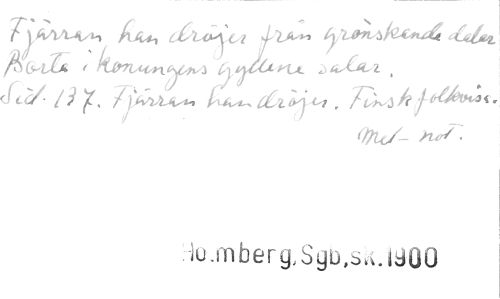 Fjärran han dröjer från grönskande dalar
Borta i konungens gyllene salar.
Sid. 137. Fjärran han dröjer. Finsk folkvisa.
Med not.
Ho.mberg, Sgb,sk.1900